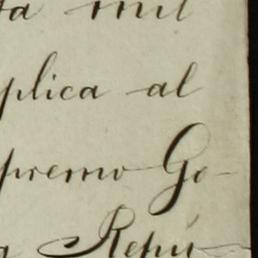 ta mil
plica al
premo Go-
a Repú-